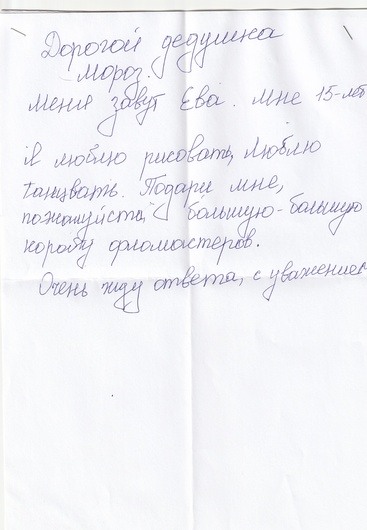 Дорогой дедушка
Мороз.
Меня завут Ева. Мне 15-лет
Я люблю рисовать, люблю
танцвать. Подари мне,
пожалуйста большую-большую
коробу фломастеров.
Очень жду ответа, с уважением